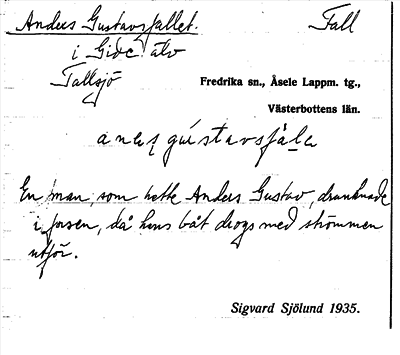 Anders Gustavsfallet. Fall
i Gide älv
Tallsjö
Fredrika sn., Åsele Lappm. tg.,
Västerbottens län.
En man, som hette Anders Gustav, drunknade
i forsen, då hans båt drogs med strömmen
utför.
Sigvard Sjölund 1935.